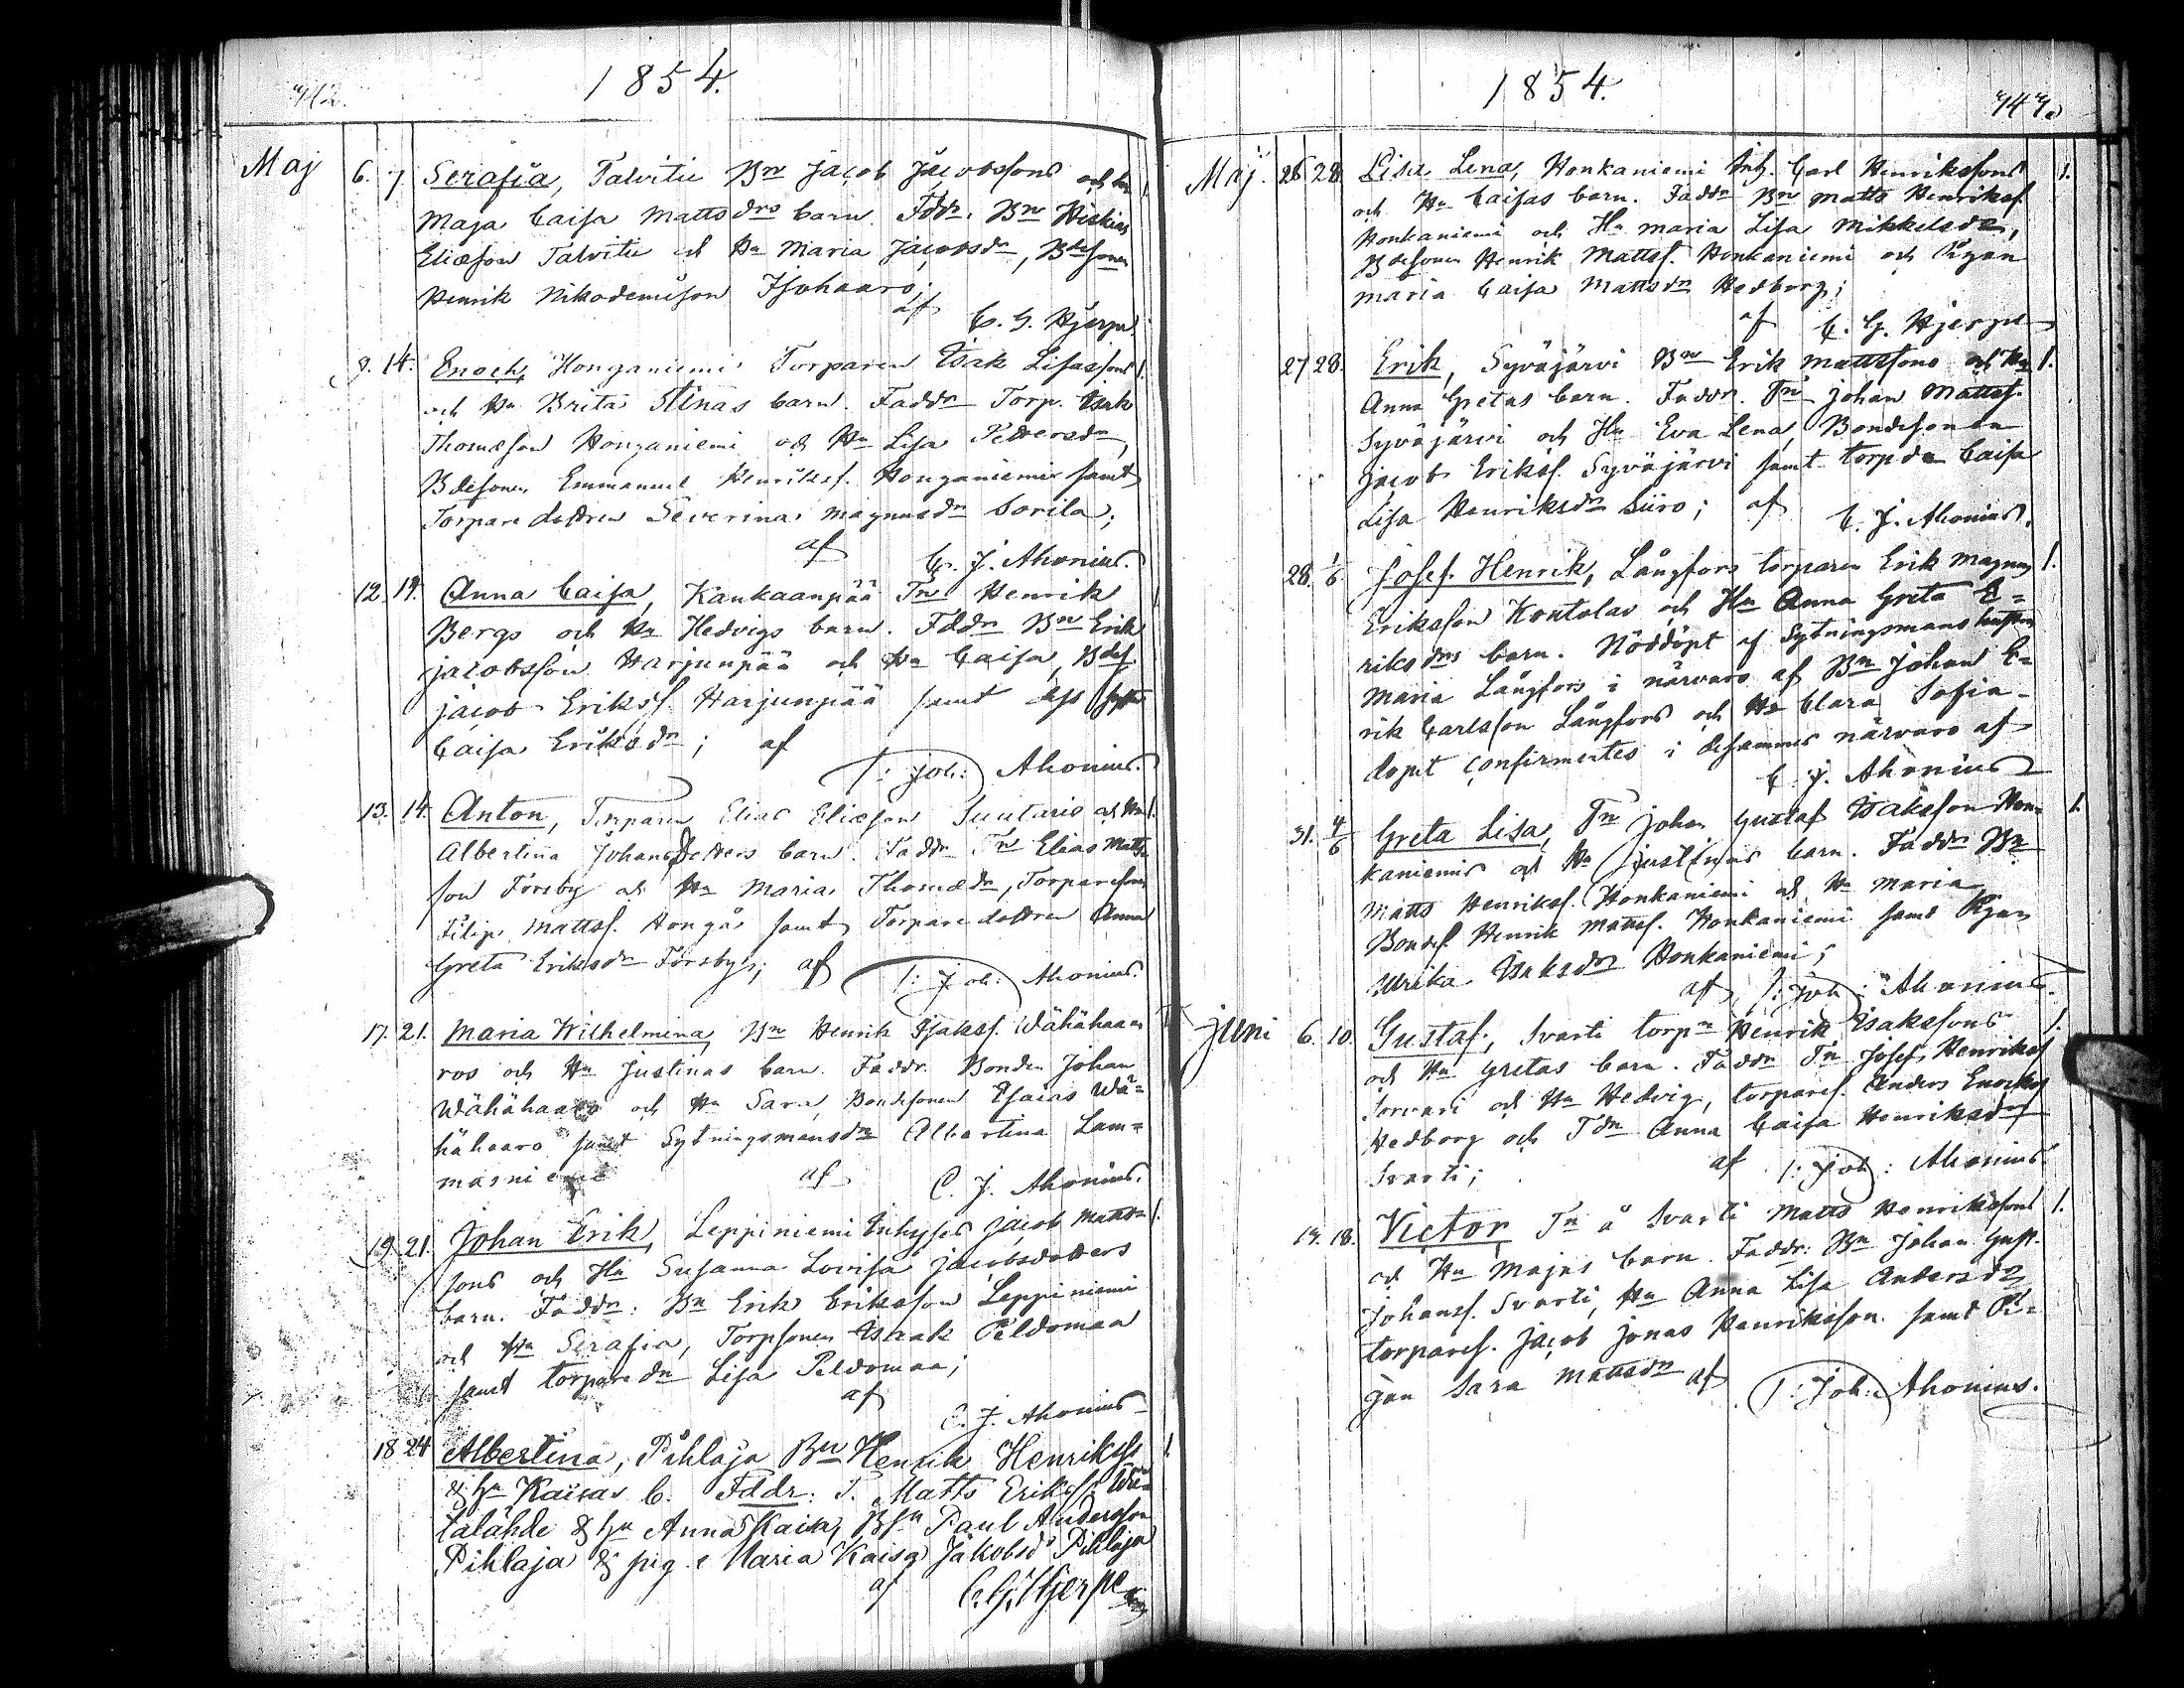 1854.
Maj 6. 7. Serafia, Talvitie Bn Jacob Jacobssons och hu
Maja Caisa Mattsdrs barn. Fddr. Bn Hiskias
Eliæson Talvitie och Hu Maria Jacobsdr, Bdesonen
Henrik Nikodemusson Isohaaro;
af C. G. Hjerpe
9. 14. Enoch, Honganiemi Torparen Isak Lisassons 1.
och Hu Brita Stinas barn. Faddr Torp. Isak
Thomæson Honganiemi och Hu Lisa Pettersdr,
Bdesonen Emmanuel Henrikss. Honganiemi samt
Torparedottren Severina Magnusdr Sorila;
af C. J. Ahonius.
12. 14. Anna Caisa, Kankaanpää Tn Henrik
Bergs och Hu Hedvigs barn. Fddr Bn Erik
Jacobsson Harjunpää och Hu Caisa, Bdes.
Jacob Erikss. Harjunpää samt dess syster
Caisa Eriksdr; af
/: Joh: Ahonius.
13. 14. Anton, Torparen Elias Eliæson Suutaris och Hu 1.
Albertina Johansdotters barn. Faddr Tn Elias Matts-
son Försby och Hu Maria Thomædr, Torparesonen
Filip Mattss. Hongas samt Torparedottren Anna
Greta Eriksdr Försby; af /: Joh: Ahonius.
17. 21. Maria Wilhelmina, Bn Henrik Isakss. Wähähaa-
ros och Hu Justinas barn. Faddr. Bonden Johan
Wähähaaro och Hu Sara, Bondesonen Esaias Wä=
hähaaro samt Sytningsmansdr Albertina Lam=
masniemi af C. J. Ahonius.
19. 21. Johan Erik, Leppiniemi Inhyses Jacob Matts- 1.
sons och Hu Susanna Lovisa Jacobsdotters
barn. Faddr: Bn Erik Eriksson Leppiniemi
och Hu Serafia, Torpsonen Isaak Peldomaa
samt torparedr Lisa Peldomaa;
af C. J. Ahonius
18 24 Albertina, Pihlaja Bn Henrik Henrikss 1.
& hu Kaisas b. Fddr: T. Matts Erikss.
talähde & hu Anna Kaisa, Bsn Paul Andersson
Pihlaja & pig. Maria Kaisa Jakobsd Pihlaja
af C. G. Hjerpe
1854.
Maj. 26 28. Lisa Lena, Honkaniemi Inh. Carl Henrikssons 1.
och Hu Caisas barn. Faddr Bn Matts Henrikss.
Honkaniemi och Hu Maria Lisa Mikkelsdr,
Bdesonen Henrik Mattss. Honkaniemi och Pigan
Maria Caisa Mattsdr Hedborg;
af C. G. Hjerpe
27 28. Erik, Syväjärvi Bn Erik Mattssons och Hu 1.
Anna Gretas barn. Faddr. Tn Johan Mattss.
Syväjärvi och Hu Eva Lena, Bondesonen
Jacob Erikss. Syväjärvi samt torpdr Caisa
Lisa Henriksdr Siiro; af C. J. Ahonius.
28. 1/6. Josef Henrik, Långfors torparen Erik Magnus 1.
Eriksson Koutolas och Hu Anna Greta E=
riksdrs barn. Nöddöpt af Sytningsmanshustrun
Maria Långfors i närvaro af Bn Johan E=
rik Carlsson Långfors och Hu Clara Sofia-
dopet confirmertes i desammes närvaro af
C. J. Ahonius
31. 4/6 Greta Lisa, Tn Johan Gustaf Isaksson Hon- 1.
kaniemis och Hu Justinas barn. Faddr Bn
Matts Henrikss. Honkaniemi och Hu Maria
Bondes. Henrik Mattss. Honkaniemi samt Pigan
Ulrika Isaksdr Honkaniemi;
af /: Joh: Ahonius.
Juni 6. 10. Gustaf, Svarti torpn Henrik Isakssons 1.
och Hu Gretas barn. Faddr Tn Josef Henrikss
Sorvari och Hu Hedvig, torpares. Anders Enockss
Hedborg och Tdr Anna Caisa Henriksdr
Svarti; af /: Joh: Ahonius.
14. 18. Victor, Tn å Svarti Matts Henrikssons 1.
och Hu Majas barn. Faddr: Bn Johan Gust.
Johanss. Svarti, Hu Anna Lisa Andersdr,
torpares. Jacob Jonas Henriksson samt Pi=
gan Sara Mattsdr af /: Joh: Ahonius.